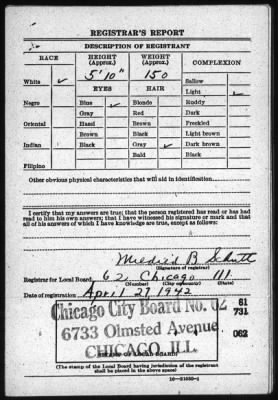 REGISTRAR'S REPORT
DESCRIPTION OF REGISTRANT
RACE HEIGHT (Approx.) WEIGHT (Approx.) COMPLEXION
White ✓ 5' 10" 150 Sallow
EYES HAIR Light ✓
Negro Blue ✓ Blonde Ruddy
Gray Red Dark
Oriental Hazel Brown Freckled
Brown Black Light brown
Indian Black Gray ✓ Dark brown
Bald Black
Filipino
Other obvious physical characteristics that will aid in identification
I certify that my answers are true; that the person registered has read or has had
read to him his own answers; that I have witnessed his signature or mark and that
all of his answers of which I have knowledge are true, except as follows:
Mildred B
(Signature of registrar)
Registrar for Local Board 62 Chicago Ill
(Number) (City or county) (State)
Date of registration April 27 1942
Chicago City Board No. 62 61
6733 Olmsted Avenue 731
CHICAGO, ILL. 062
(STAMP OF LOCAL BOARD)
(The stamp of the Local Board having jurisdiction of the registrant
shall be placed in the above space)